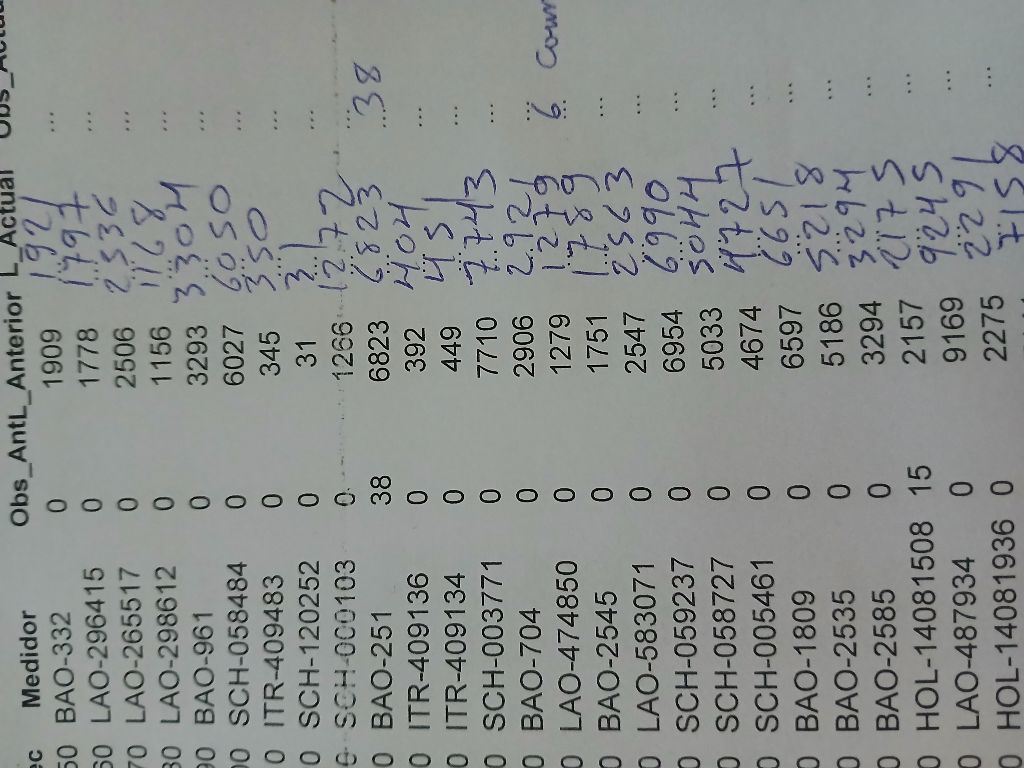 ec Medidor Obs_AntL_Anterior L_Actual Obs_Actua
50 BAO-332 0 1909 1921 ...
60 LAO-296415 0 1778 1797 ...
70 LAO-265517 0 2506 2536 ...
80 LAO-298612 0 1156 1168 ...
90 BAO-961 0 3293 3304 ...
00 SCH-058484 0 6027 6050 ...
0 ITR-409483 0 345 350 ...
0 SCH-120252 0 31 31 ...
0 SCH-000103 0 1266 1272 ...
0 BAO-251 38 6823 6823 38
0 ITR-409136 0 392 404 ...
0 ITR-409134 0 449 451 ...
0 SCH-003771 0 7710 7743 ...
0 BAO-704 0 2906 2921 ...
0 LAO-474850 0 1279 1279 6
0 BAO-2545 0 1751 1789 ...
0 LAO-583071 0 2547 2563 ...
0 SCH-059237 0 6954 6990 ...
0 SCH-058727 0 5033 5044 ...
0 SCH-005461 0 4674 4727 ...
0 BAO-1809 0 6597 6651 ...
0 BAO-2535 0 5186 5218 ...
0 BAO-2585 0 3294 3294 ...
0 HOL-14081508 15 2157 2175 ...
0 LAO-487934 0 9169 9245 ...
0 HOL-14081936 0 2275 2291 ...
7158